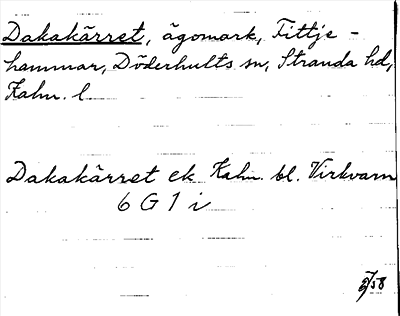 Dakakärret, ägomark, Fittje-
hammar, Döderhults sn, Stranda hd,
Kalm. l
Dakakärret ek Kalm. bl. Virkvarn
6 G 1 i
58